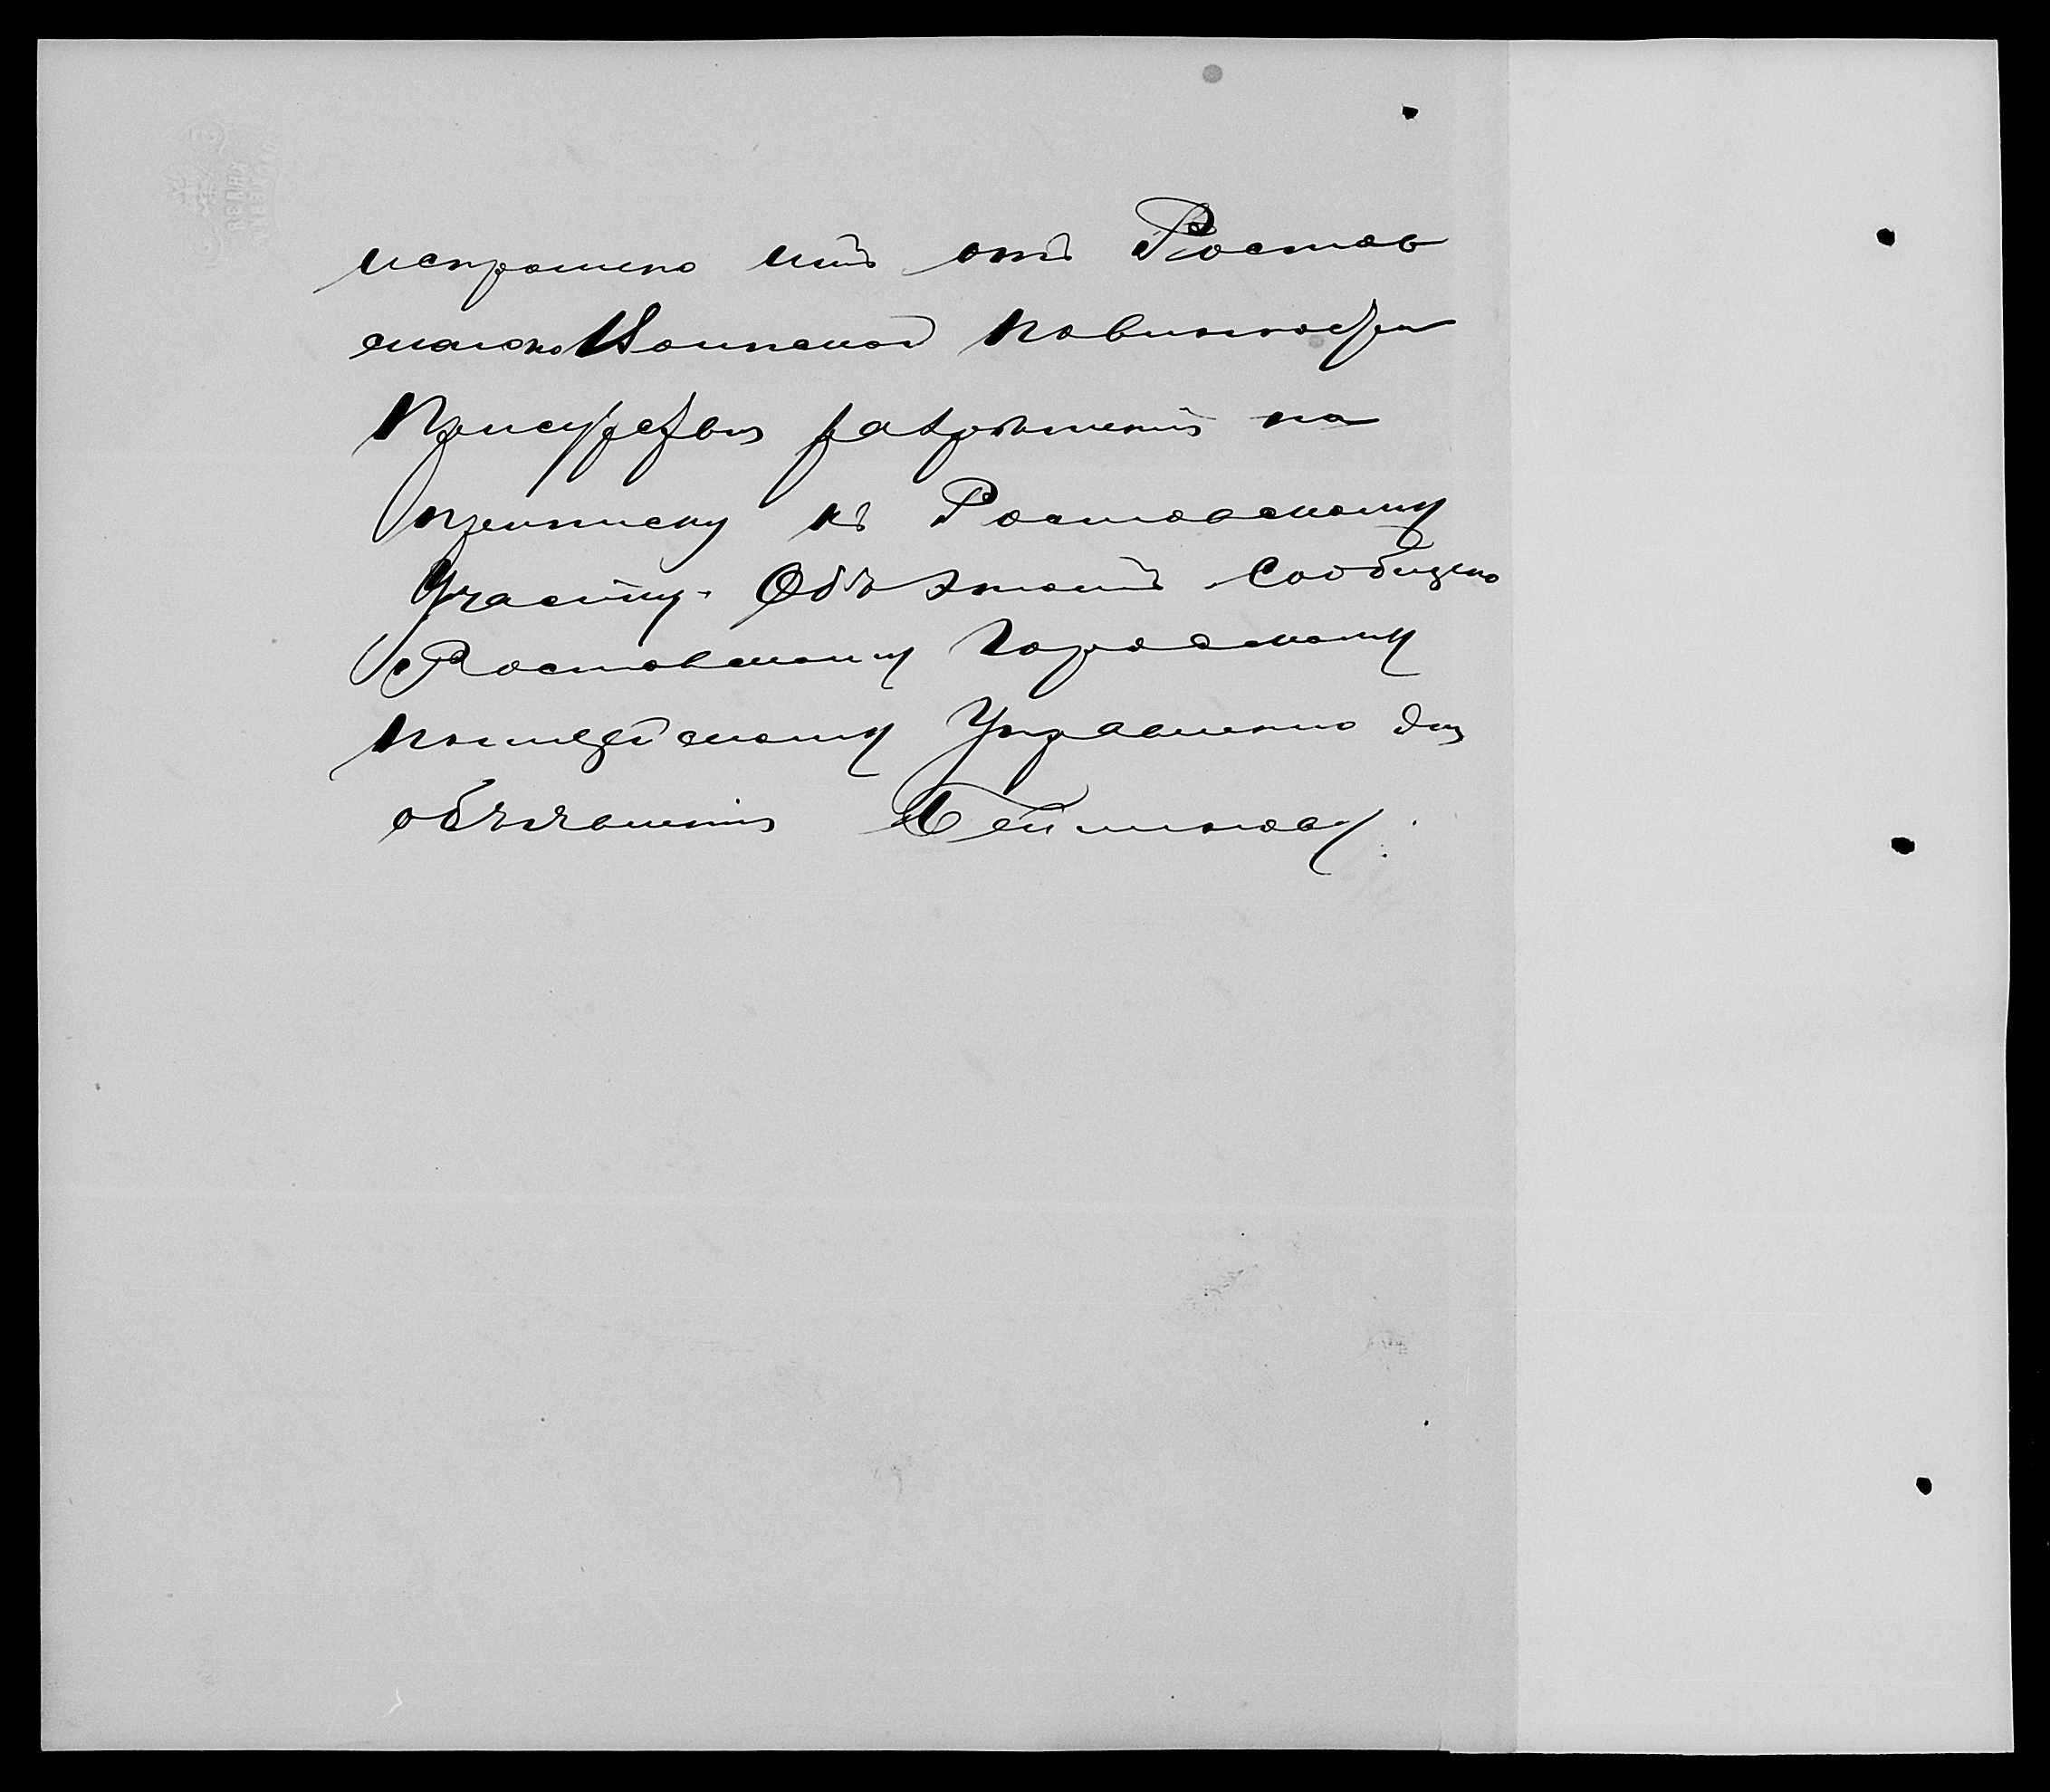 испрошено имъ отъ Ростов
скаго по Воинской повинности
Присутствія разрѣшенія на
приписку къ Ростовскому
Участку. Объ этомъ сообщено
Ростовскому Городскому
Полицейскому Управленію для
объявленія